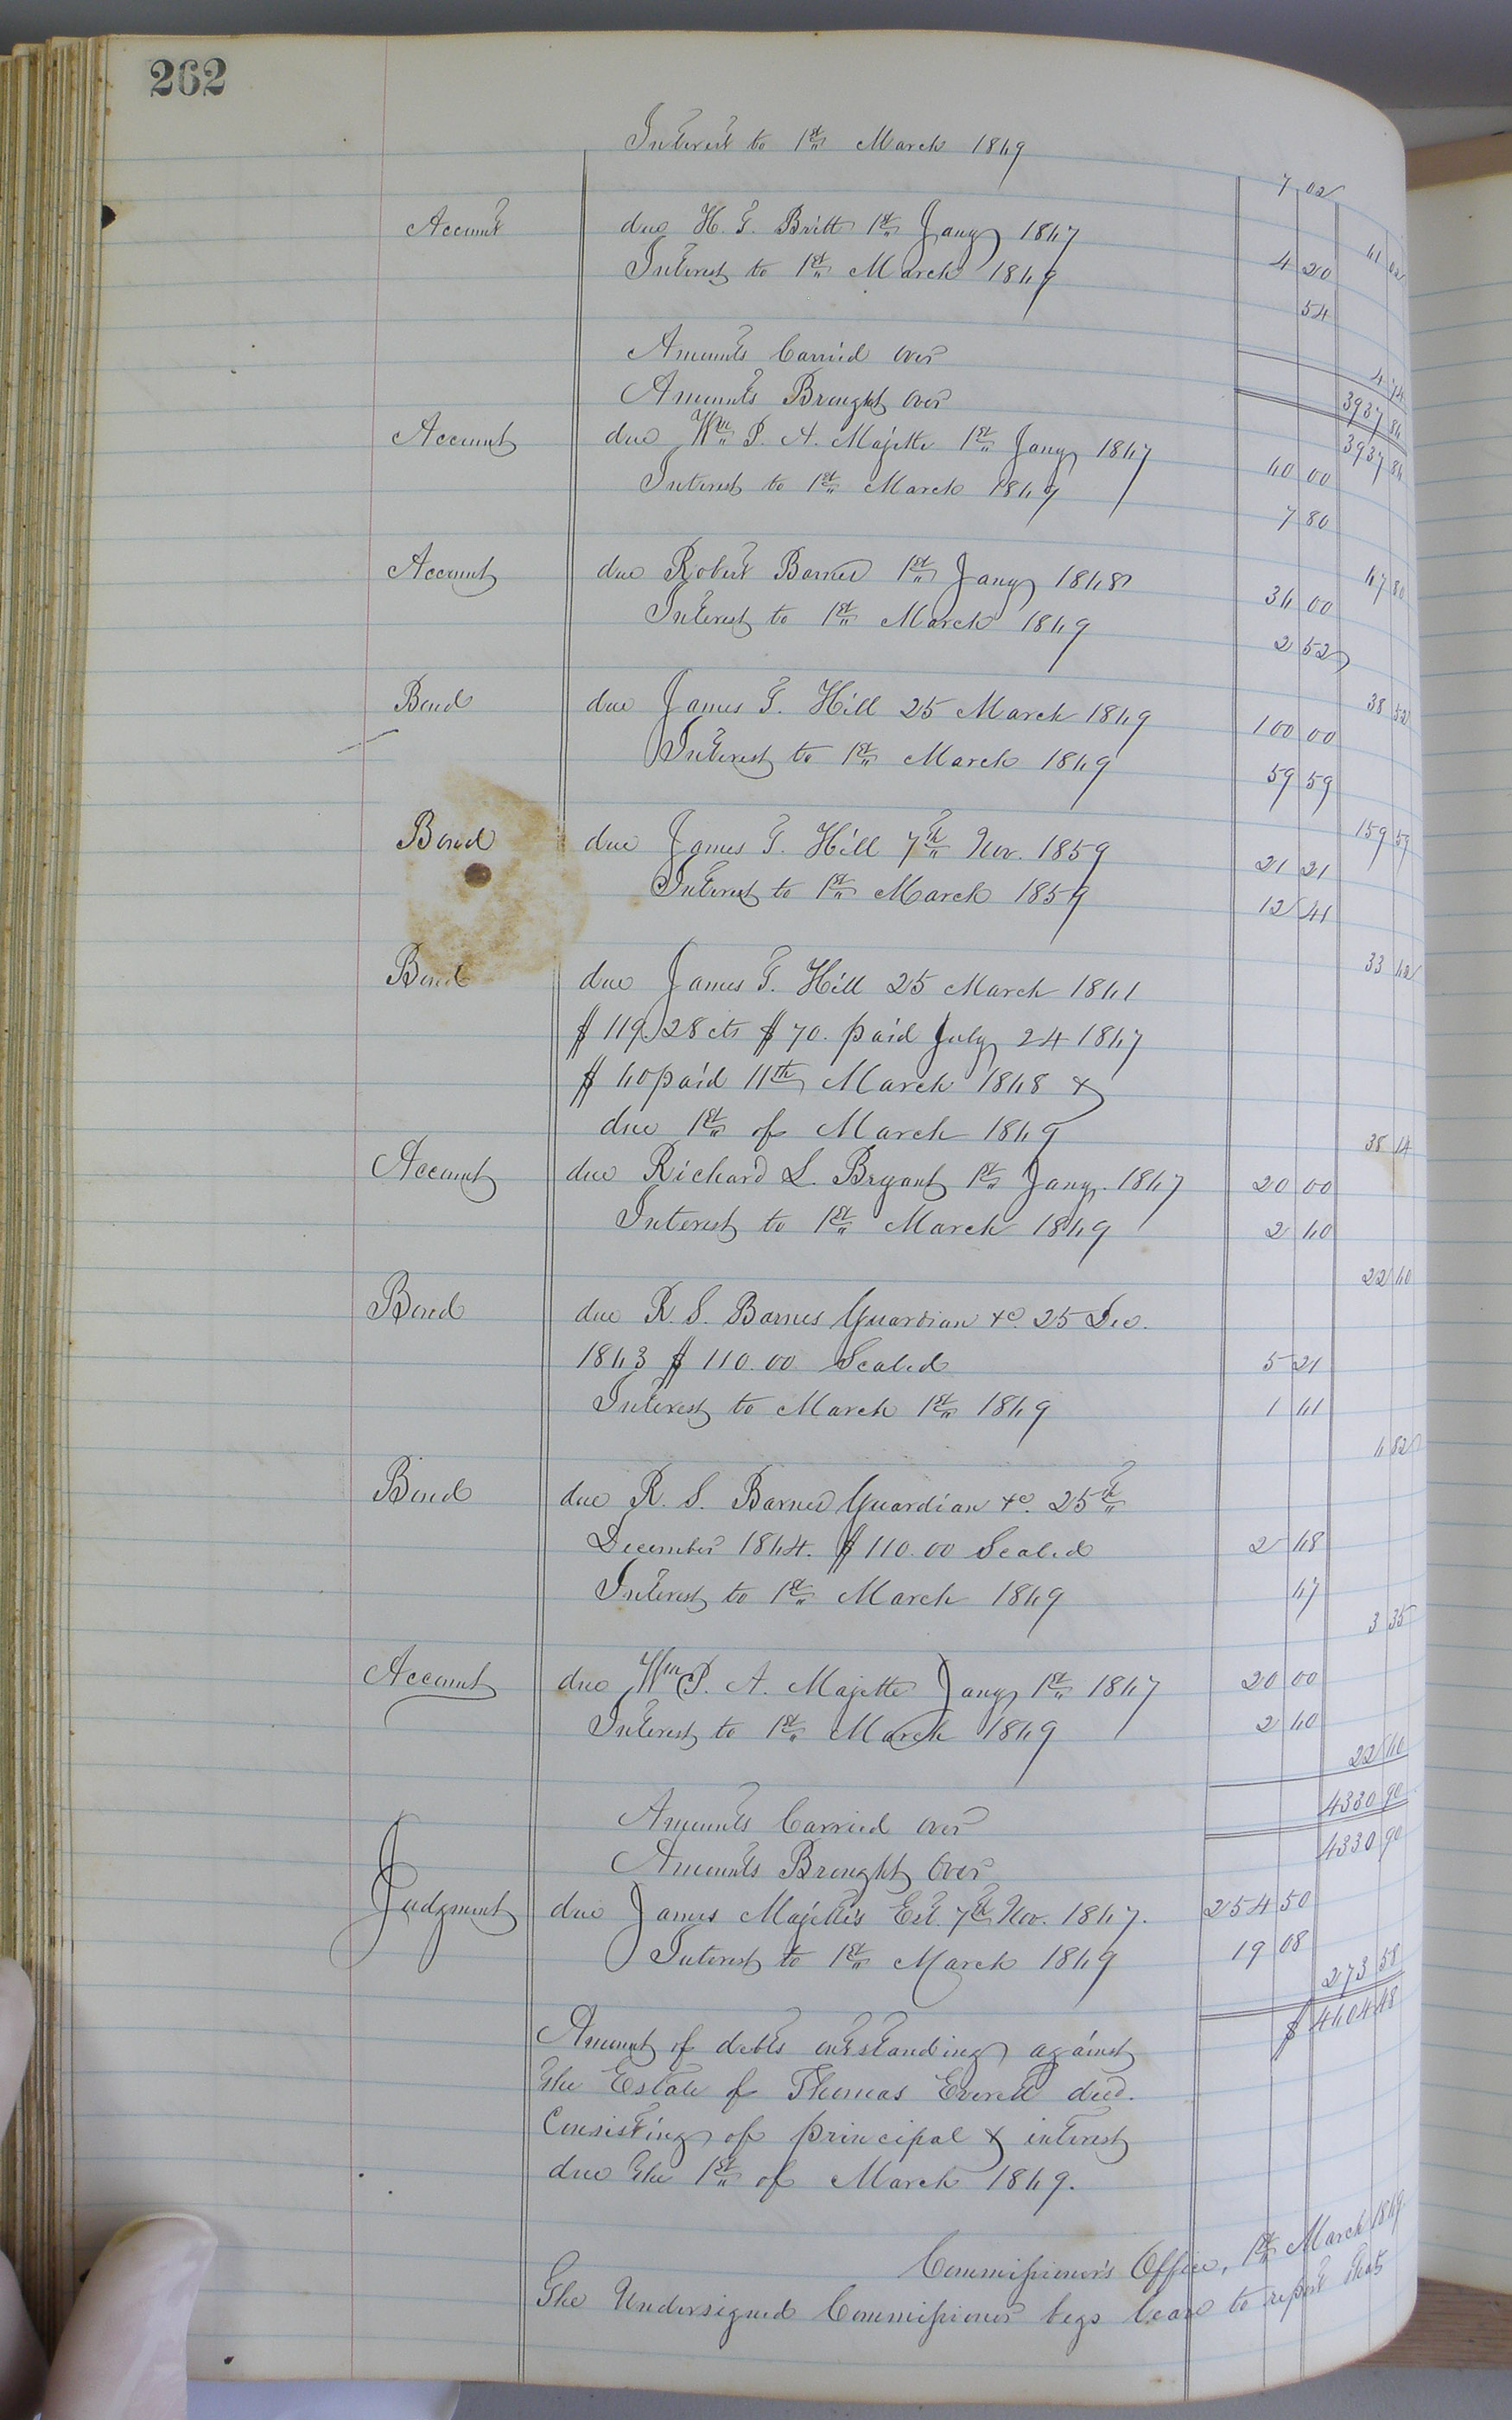 262
Interest to 1st March 1869 7 02
61 02
Account due H. T. Britt 1st Jany 1867 4 20
Interest to 1st March 1869 54
4 74
Amounts Carried over 3937 86
Amounts Brought over 3937 86
Account due Wm P. A. Majette 1st Jany 1867 60 00
Interest to 1st March 1869 7 80
67 80
Account due Robert Barnes 1st Jany 1868 36 00
Interest to 1st March 1869 2 52
38 52
Bond due James T. Hill 25 March 1869 100 00
Interest to 1st March 1869 59 59
159 59
Bond due James T. Hill 7th Nov. 1859 21 21
Interest to 1st March 1859 12 41
33 62
Bond due James T. Hill 25 March 1861
$119.28 cts $70. paid July 24 1867
$60 paid 11th March 1868 &
due 1st of March 1869 38 14
Account due Richard L. Bryant 1st Jany. 1867 20 00
Interest to 1st March 1869 2 60
22 60
Bond due R. S. Barnes Guardian &c. 25 Dec.
1863 $110.00 Scaled 5 21
Interest to March 1st 1869 1 61
6 82
Bond due R. S. Barnes Guardian &c. 25th
December 1864. $110.00 Scaled 2 68
Interest to 1st March 1869 67
3 35
Account due Wm P. A. Majette Jany 1st 1867 20 00
Interest to 1st March 1869 2 60
22 60
Amounts Carried over 4330 90
Amounts Brought Over 4330 90
Judgment due James Majette's Est. 7th Nov. 1867. 254 50
Interest to 1st March 1869 19 08
273 58
$4604 48
Amount of debts outstanding against
the Estate of Thomas Everett decd.
Consisting of principal & interest
due the 1st of March 1869.
Commissioner's Office, 1st March 1869
The Undersigned Commissioner begs leave to report that